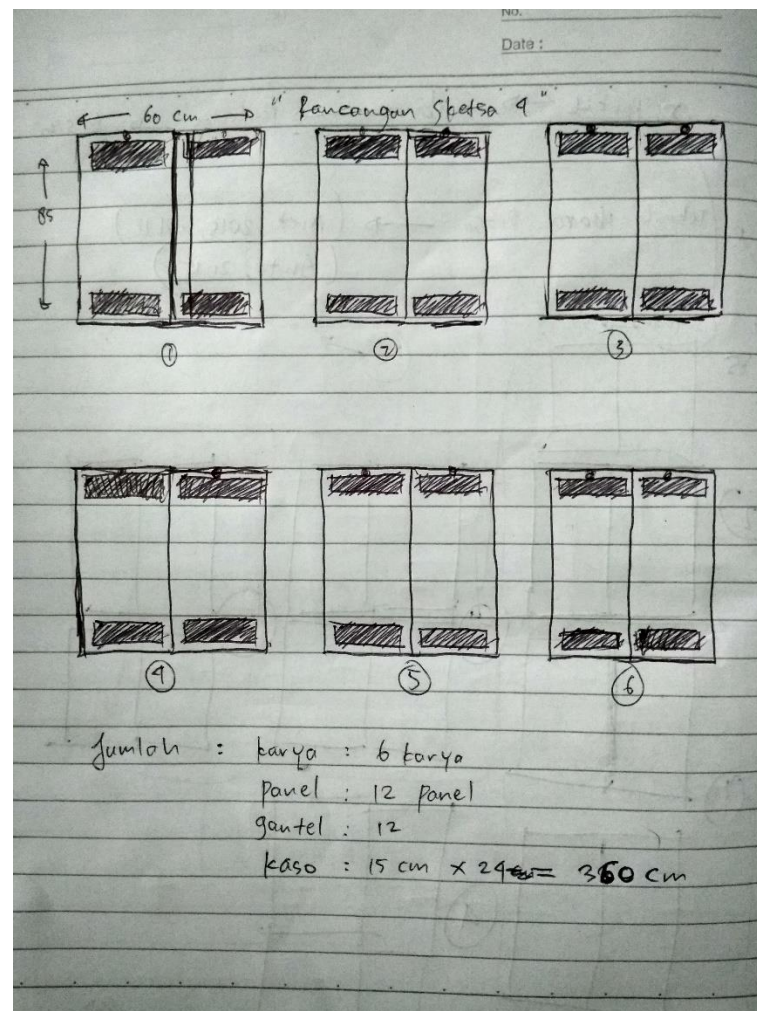 No.
Date :
60 cm "Rancangan Sketsa 4"
85
1 2 3
4 5 6
Jumlah : karya : 6 karya
panel : 12 panel
gantel : 12
kaso : 15 cm x 24 = 360 cm